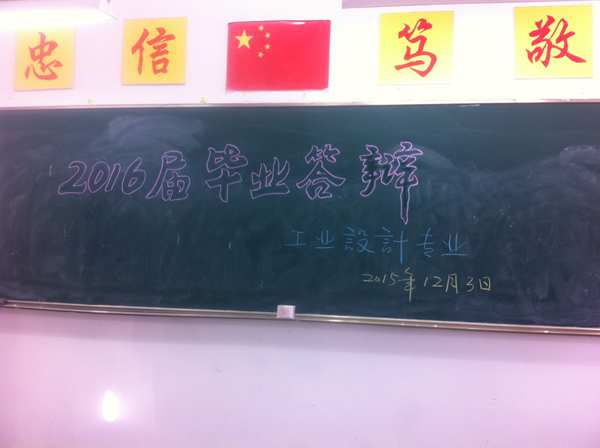 忠信笃敬
2016届毕业答辩
工业設計专业
2015年12月3日